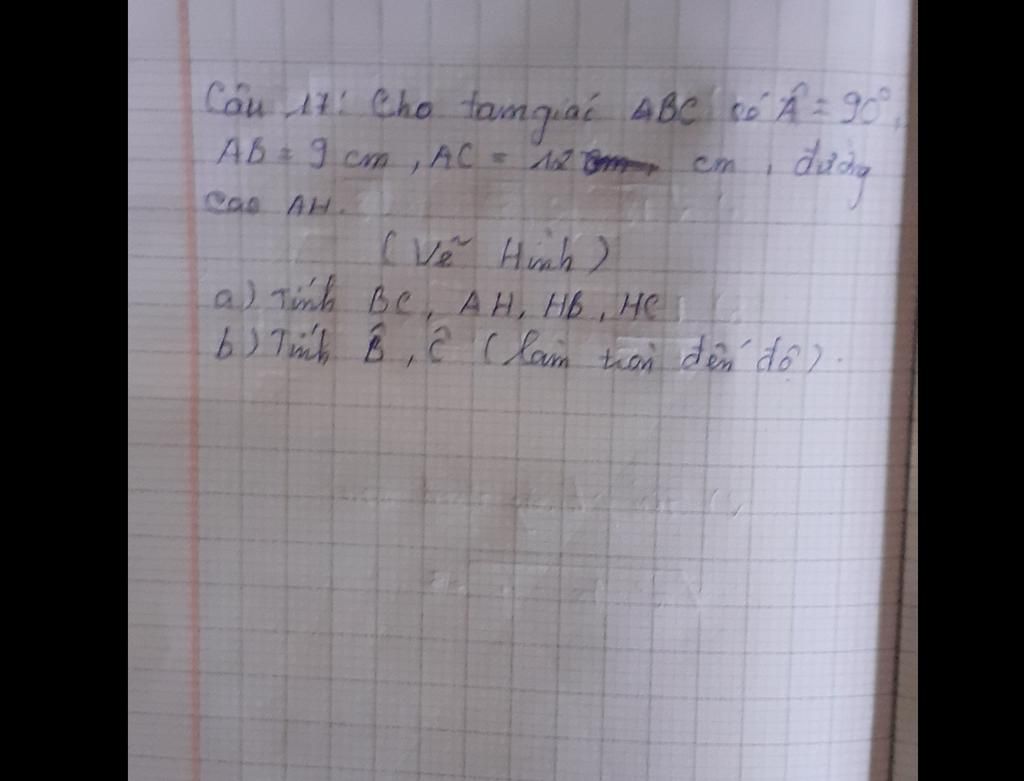 Câu 17: Cho tam giác ABC có Â = 90°,
AB = 9 cm, AC = 12 cm, đường
cao AH.
(Vẽ Hình)
a) Tính BC, AH, HB, HC
b) Tính B̂, Ĉ (làm tròn đến độ).